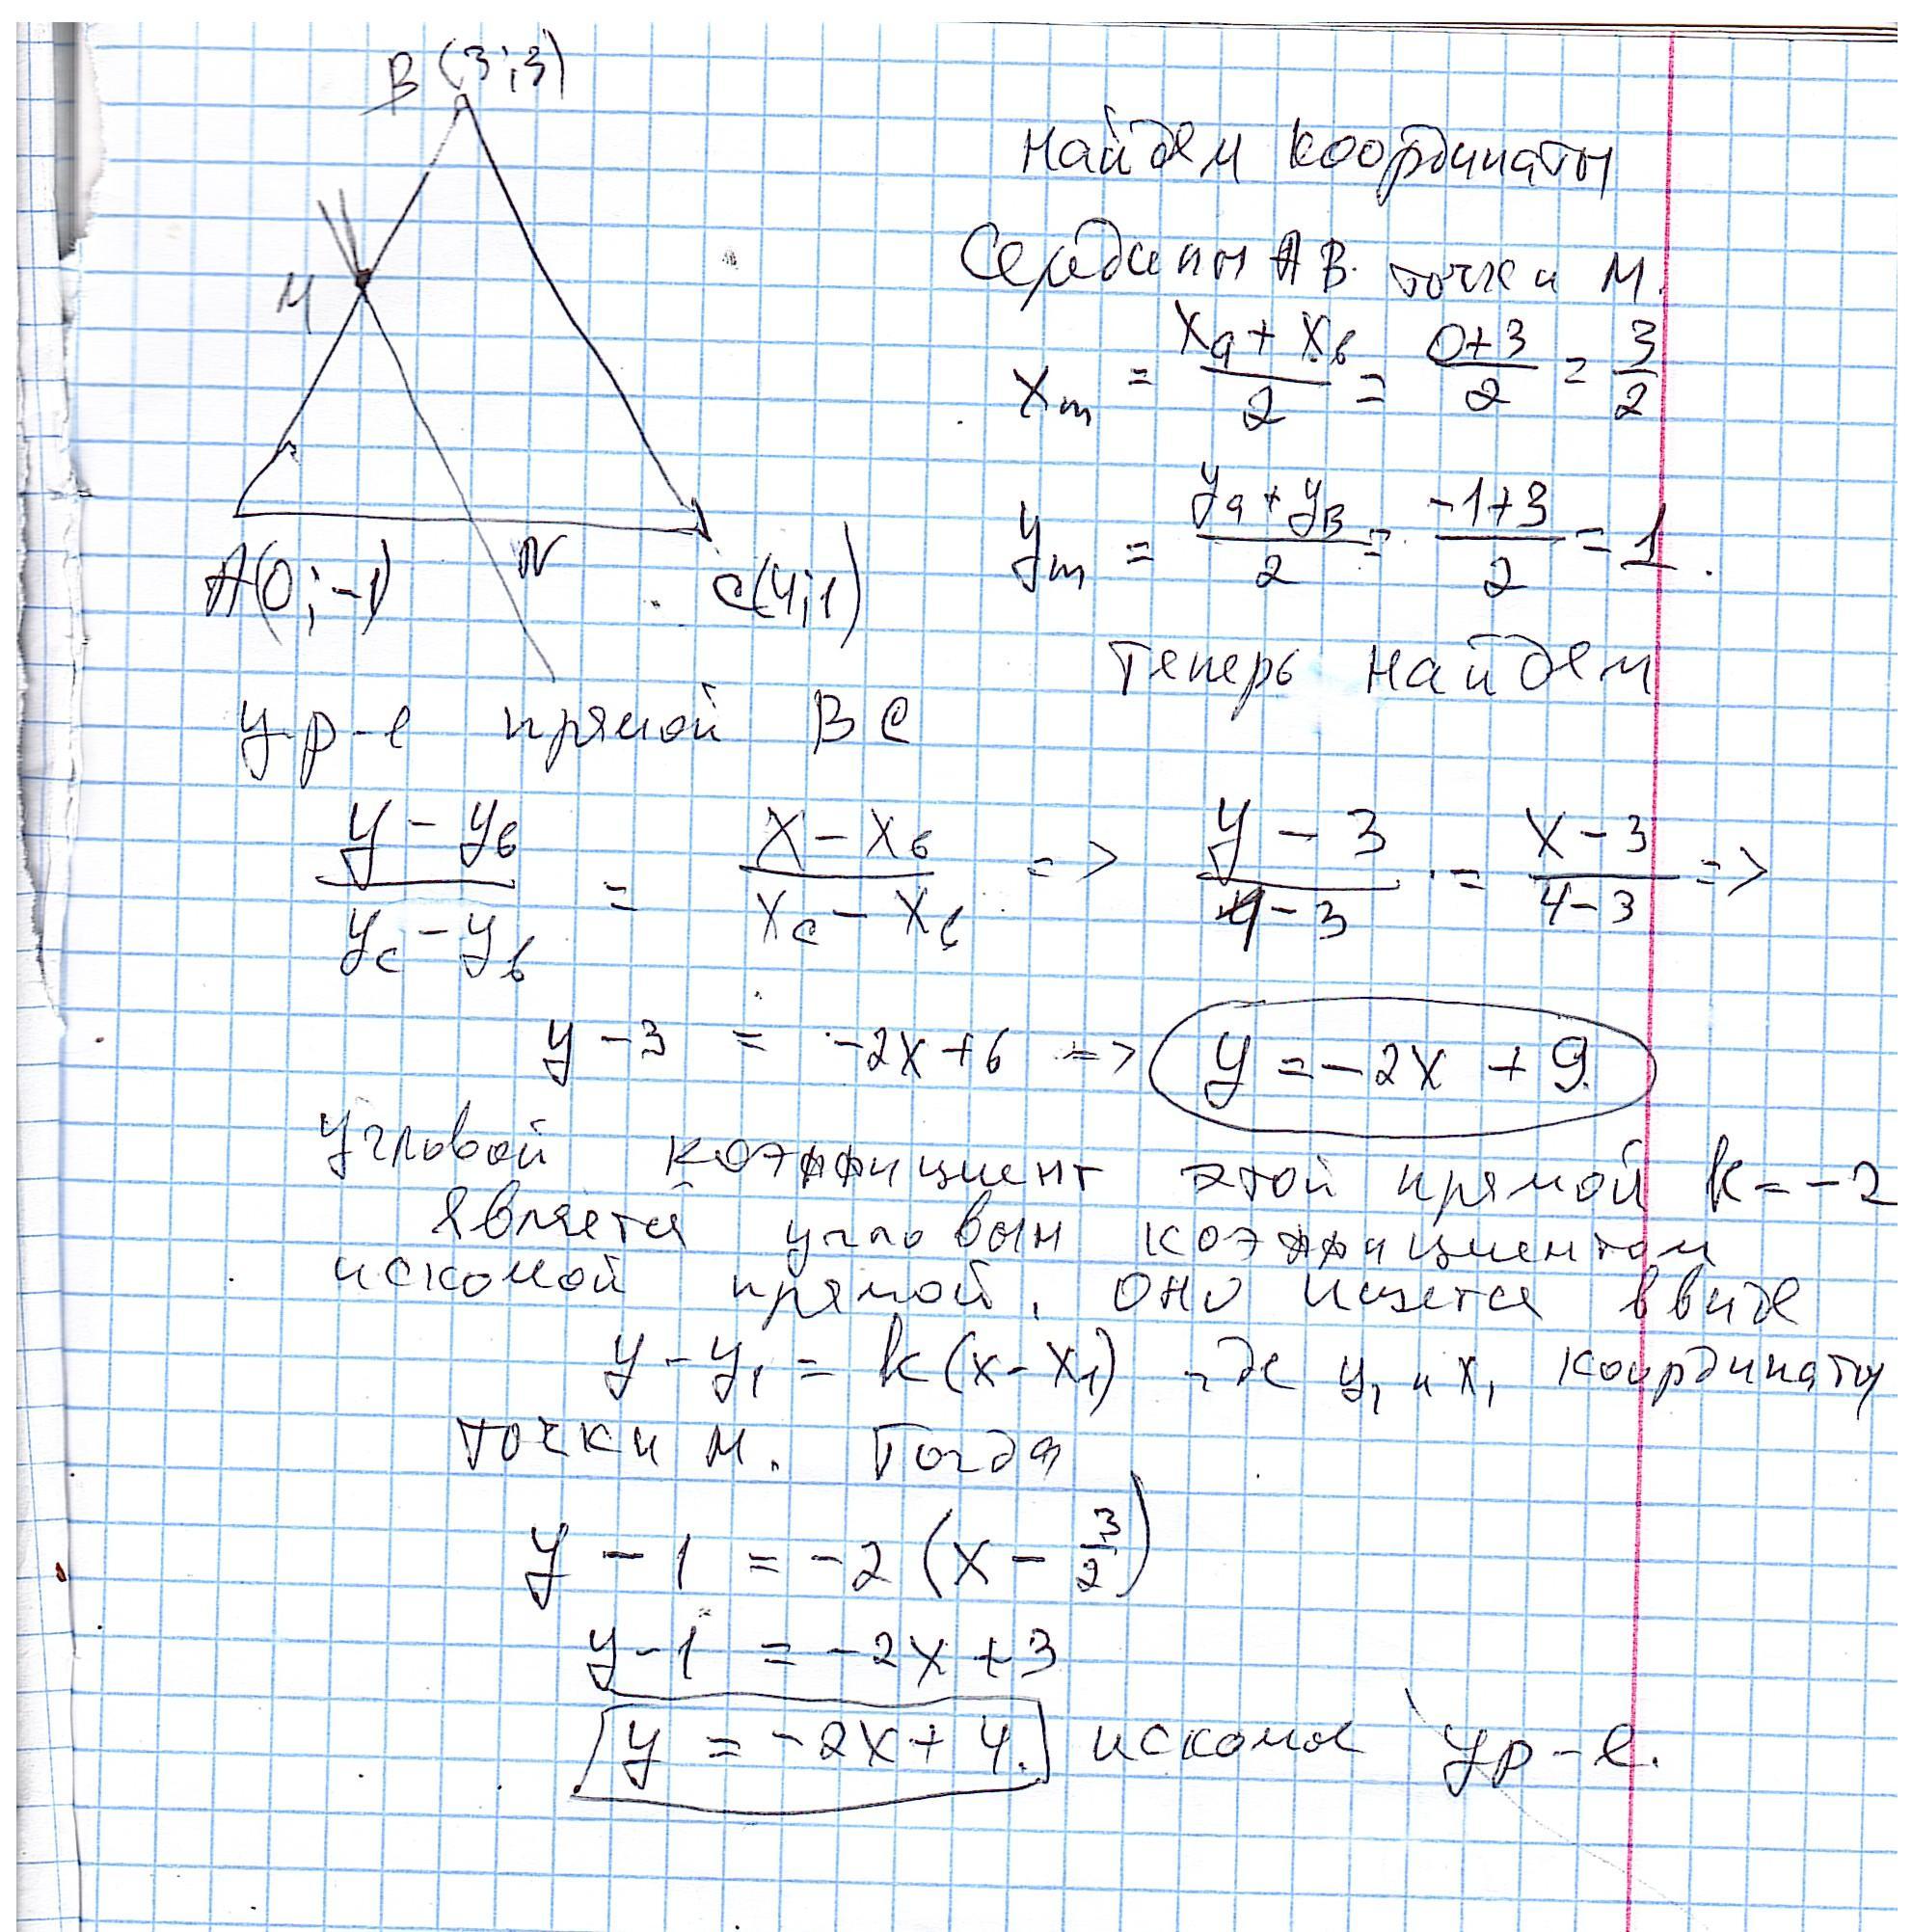 B (3;3)
M
A(0;-1)
N
C(4;1)
Найдем координаты
Середины AB. точки M.
Xm = (Xa + Xв)/2 = (0+3)/2 = 3/2
ym = (ya + yB)/2 = (-1+3)/2 = 1.
Теперь найдем
ур-е прямой BC
(y - yв)/(yc - yв) = (X - Xв)/(Xc - Xв) => (y - 3)/(1-3) = (X-3)/(4-3) =>
y - 3 = -2X + 6 => y = -2X + 9.
Угловой коэффициент этой прямой k = -2
является угловым коэффициентом
искомой прямой. Оно ищется ввиде
y - y1 = k(X - X1) где y1 и X1 координаты
точки M. Тогда
y - 1 = -2 (X - 3/2)
y - 1 = -2X + 3
y = -2X + 4. искомое ур-е.